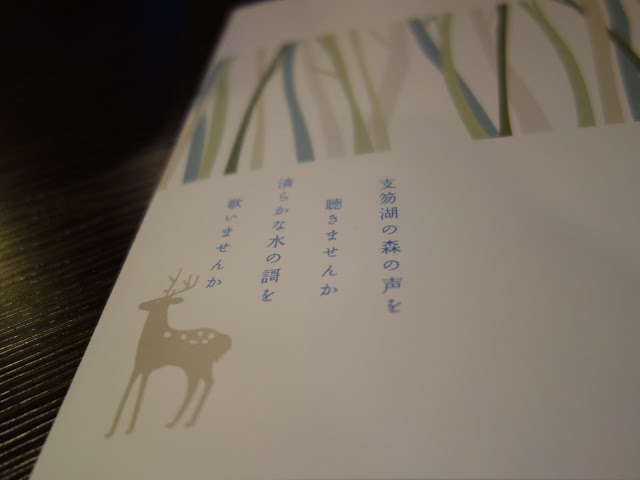 支笏湖の森の声を
聴きませんか
清らかな水の詞を
歌いませんか